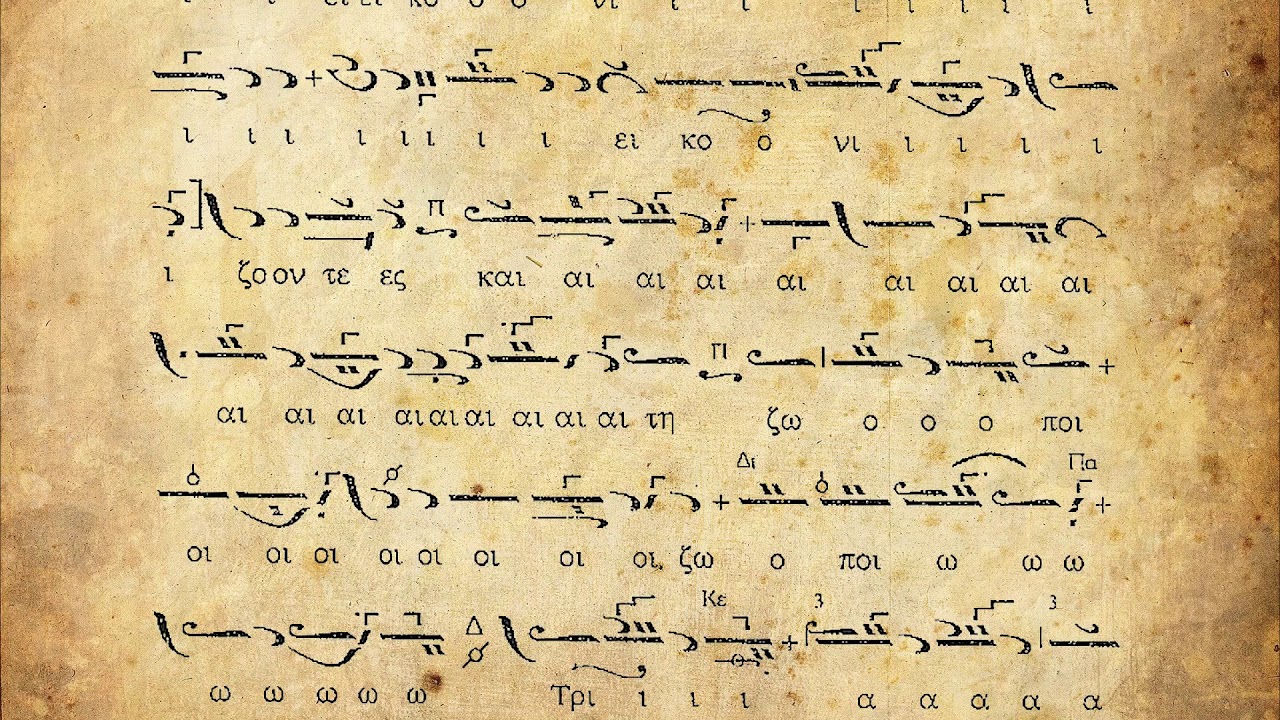 ι ι ει ει κο ο ο νι ι ι ι ι ι ι ι
ι ι ι ι ι ι ι ι ει κο ο νι ι ι ι ι
Π
ι ζο ον τε ες και αι αι αι αι αι αι αι αι
Π
αι αι αι αι αι αι αι αι αι τη ζω ο ο ο ποι
Δι Πα
οι οι οι οι οι οι οι οι ζω ο ποι ω ω ω
Κε 3 3
Δ
ω ω ω ω ω Τρι ι ι ι α α α α α